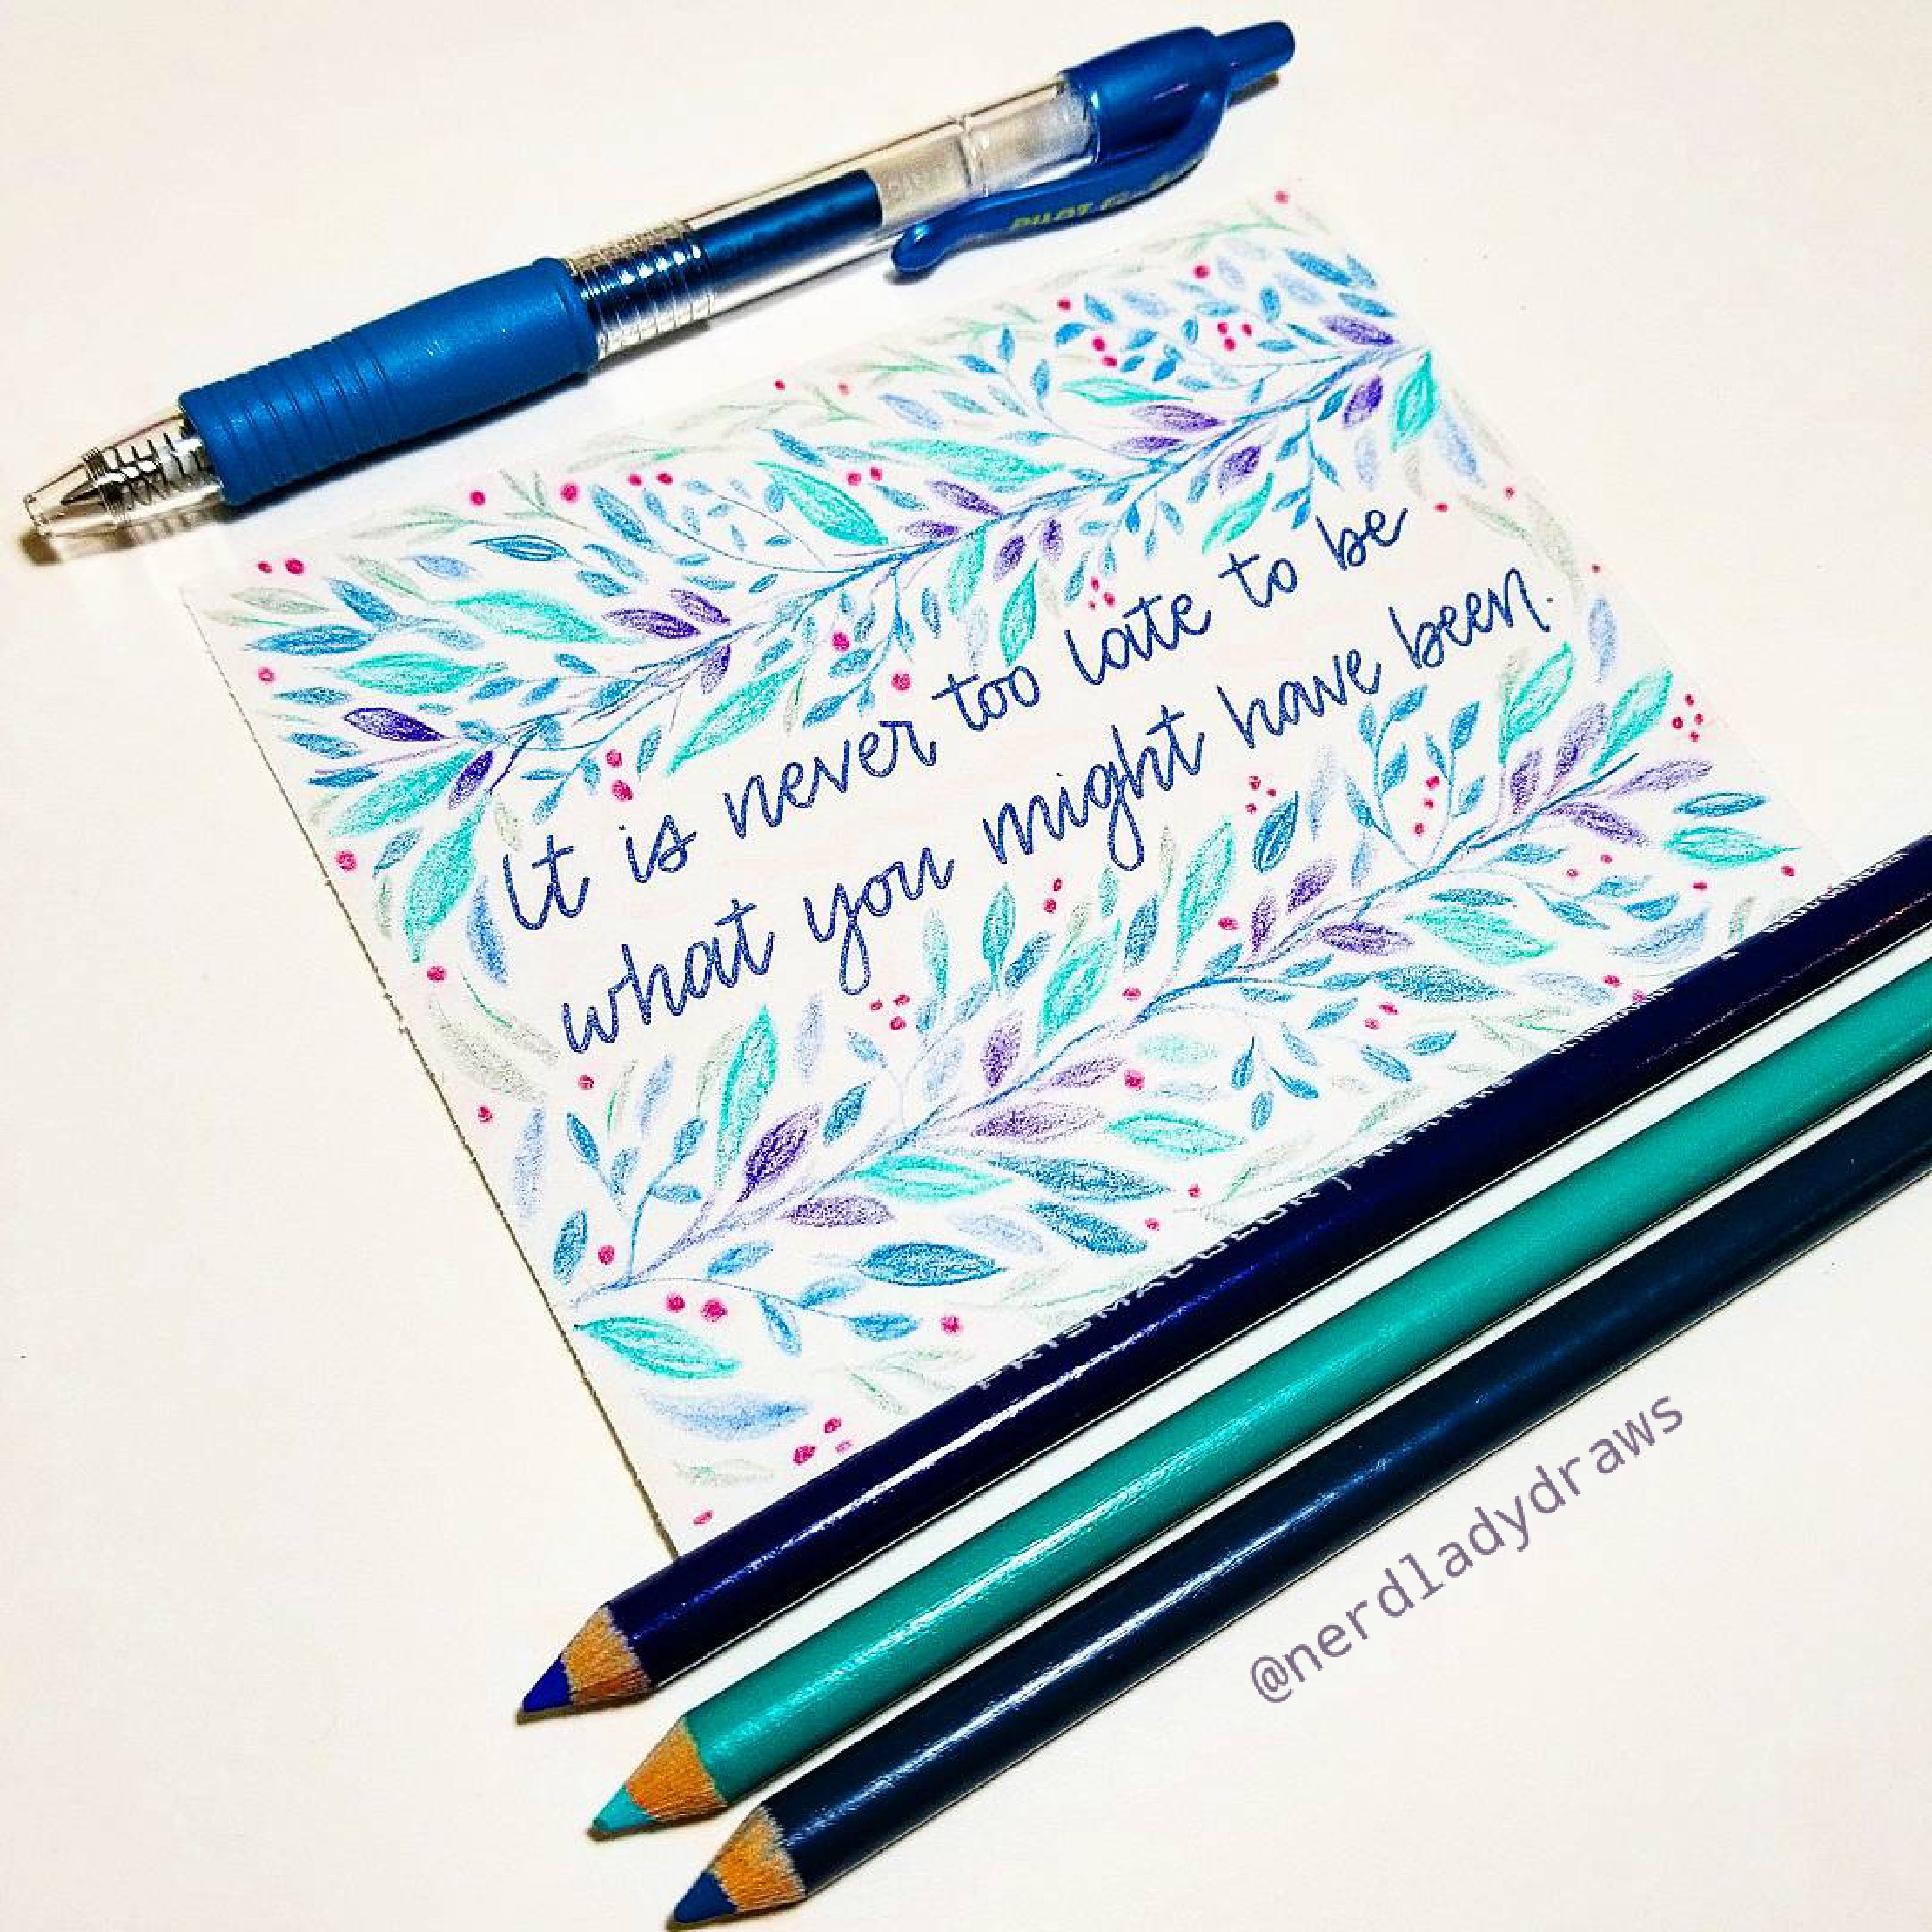 PILOT
It is never too late to be
what you might have been.
PRISMACOLOR PREMIER
@nerdladydraws